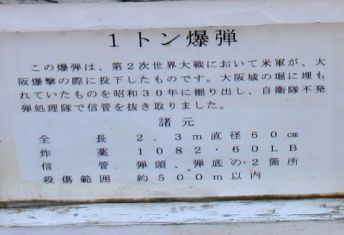 1トン爆弾
この爆弾は、第2次世界大戦において米軍が、大
阪爆撃の際に投下したものです。大阪城の堀に埋も
れていたものを昭和30年に掘り出し、自衛隊不発
弾処理隊で信管を抜き取りました。
諸元
全長 2.3m直径60㎝
炸薬 1082・60LB
信管 弾頭、弾底の2箇所
殺傷範囲 約500m以内